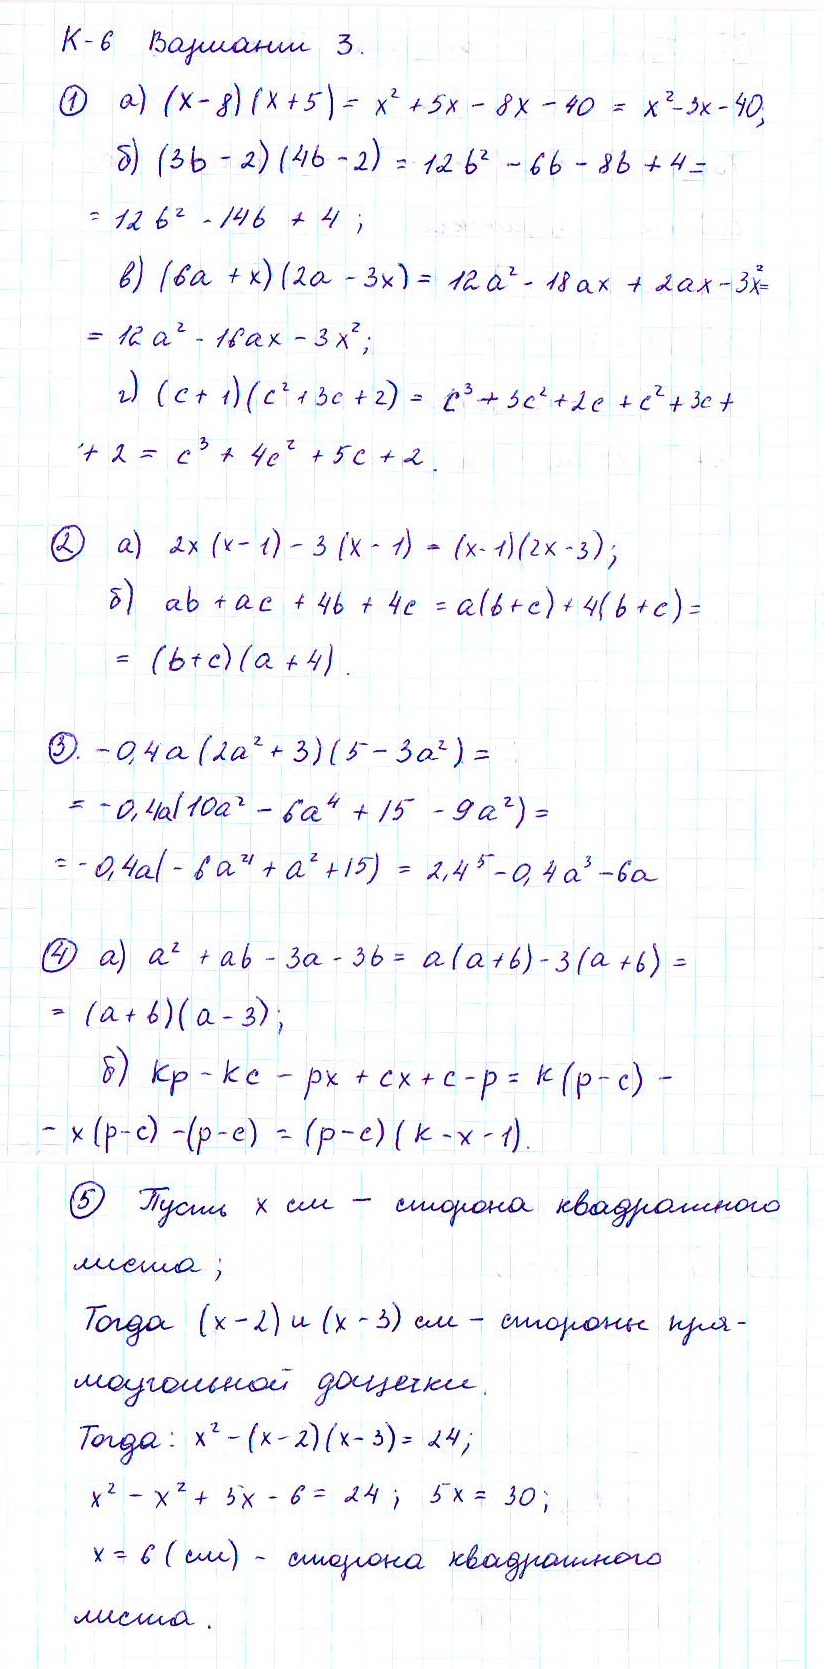 К-6 Вариант 3.
① а) (x-8)(x+5) = x² + 5x - 8x - 40 = x²-3x-40;
б) (3b - 2)(4b - 2) = 12b² - 6b - 8b + 4 =
= 12b² - 14b + 4 ;
в) (6a + x)(2a - 3x) = 12a² - 18ax + 2ax - 3x² =
= 12a² - 16ax - 3x²;
г) (c+1)(c²+3c+2) = c³ + 3c² + 2c + c² + 3c +
+ 2 = c³ + 4c² + 5c + 2.
② а) 2x(x-1) - 3(x-1) = (x-1)(2x-3);
б) ab + ac + 4b + 4c = a(b+c) + 4(b+c) =
= (b+c)(a+4).
③. -0,4a(2a²+3)(5-3a²) =
= -0,4a(10a² - 6a⁴ + 15 - 9a²) =
= -0,4a(-6a⁴ + a² + 15) = 2,4⁵ - 0,4a³ - 6a
④ а) a² + ab - 3a - 3b = a(a+b) - 3(a+b) =
= (a+b)(a-3);
б) kp - kc - px + cx + c - p = k(p-c) -
- x(p-c) - (p-c) = (p-c)(k-x-1).
⑤ Пусть x см – сторона квадратного
листа ;
Тогда (x-2) и (x-3) см – стороны пря-
моугольной дощечки.
Тогда: x² - (x-2)(x-3) = 24;
x² - x² + 5x - 6 = 24 ; 5x = 30;
x = 6 (см) - сторона квадратного
листа .